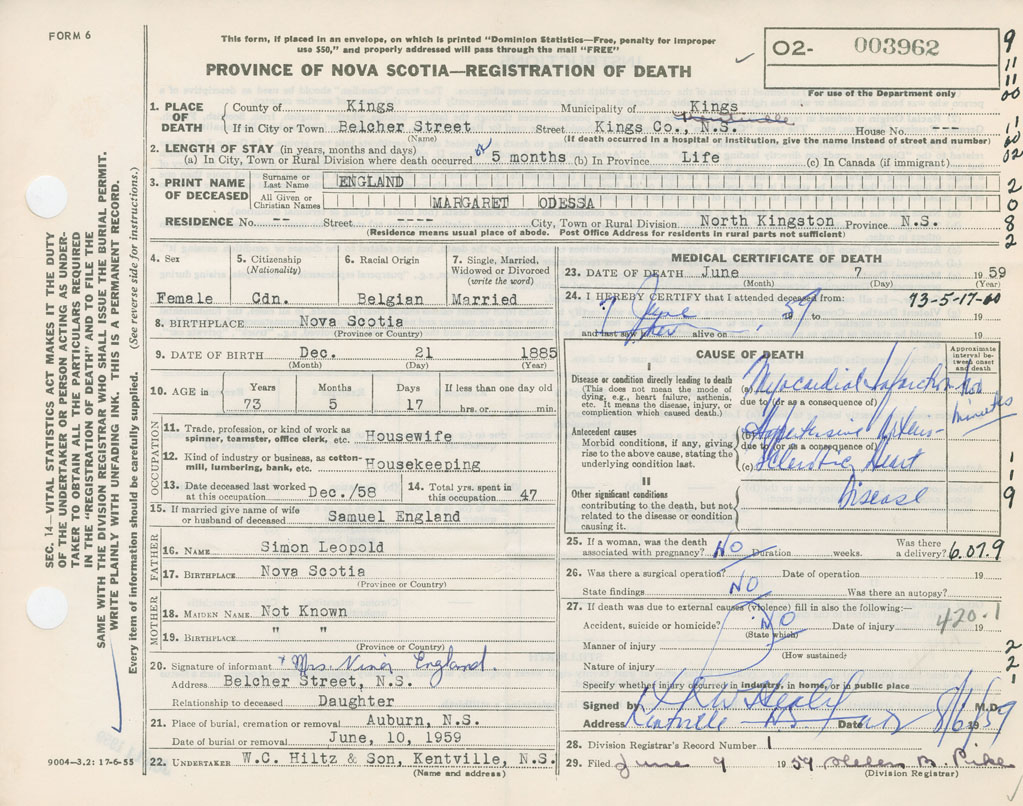 FORM 6
This form, if placed in an envelope, on which is printed "Dominion Statistics—Free, penalty for improper
use $50," and properly addressed will pass through the mail "FREE"
PROVINCE OF NOVA SCOTIA—REGISTRATION OF DEATH
02- 003962
For use of the Department only
9
11
11
00
11
60
02
2
0
8
2
1. PLACE OF DEATH County of Kings Municipality of Kings
If in City or Town Belcher Street Street Kings Co., N.S. House No. ---
(Name) (If death occurred in a hospital or institution, give the name instead of street and number)
2. LENGTH OF STAY (in years, months and days)
(a) In City, Town or Rural Division where death occurred 5 months (b) In Province Life (c) In Canada (if immigrant)
3. PRINT NAME OF DECEASED Surname or Last Name ENGLAND
All Given or Christian Names MARGARET ODESSA
RESIDENCE No. -- Street ---- City, Town or Rural Division North Kingston Province N.S.
(Residence means usual place of abode. Post Office Address for residents in rural parts not sufficient)
4. Sex 5. Citizenship (Nationality) 6. Racial Origin 7. Single, Married, Widowed or Divorced (write the word)
Female Cdn. Belgian Married
8. BIRTHPLACE Nova Scotia
(Province or Country)
9. DATE OF BIRTH Dec. 21 1885
(Month) (Day) (Year)
10. AGE in Years Months Days If less than one day old
73 5 17 hrs. or min.
OCCUPATION
11. Trade, profession, or kind of work as
spinner, teamster, office clerk, etc. Housewife
12. Kind of industry or business, as cotton-
mill, lumbering, bank, etc. Housekeeping
13. Date deceased last worked at this occupation Dec./58 14. Total yrs. spent in this occupation 47
15. If married give name of wife
or husband of deceased Samuel England
FATHER
16. NAME Simon Leopold
17. BIRTHPLACE Nova Scotia
(Province or Country)
MOTHER
18. MAIDEN NAME Not Known
19. BIRTHPLACE " "
(Province or Country)
20. Signature of informant x Mrs. England.
Address Belcher Street, N.S.
Relationship to deceased Daughter
21. Place of burial, cremation or removal Auburn, N.S.
Date of burial or removal June, 10, 1959
22. UNDERTAKER W.C. Hiltz & Son, Kentville, N.S.
(Name and address)
MEDICAL CERTIFICATE OF DEATH
23. DATE OF DEATH June 7 1959
(Month) (Day) (Year)
24. I HEREBY CERTIFY that I attended deceased from: 73-5-17-60
7 June 1959 to 19
and last saw h alive on 19
CAUSE OF DEATH
Approximate interval between onset and death
I
Disease or condition directly leading to death
(This does not mean the mode of
dying, e.g., heart failure, asthenia,
etc. It means the disease, injury, or
complication which caused death.)
Myocardial Infarction
due to (or as a consequence of)
minutes
Antecedent causes
Morbid conditions, if any, giving
rise to the above cause, stating the
underlying condition last.
(b) Hypertensive Arterio-
due to (or as a consequence of)
(c) sclerotic Heart
Disease
II
Other significant conditions
contributing to the death, but not
related to the disease or condition
causing it.
1
1
9
25. If a woman, was the death
associated with pregnancy? NO Duration weeks. Was there a delivery? 6.07.9
26. Was there a surgical operation? Date of operation 19
State findings NO Was there an autopsy?
27. If death was due to external causes (violence) fill in also the following:—
Accident, suicide or homicide? NO Date of injury 19
(State which)
420.1
Manner of injury
(How sustained)
Nature of injury
2
2
1
Specify whether injury occurred in industry, in home, or in public place
Signed by M.D.
Address Kentville NS Date 8/6/1959
28. Division Registrar's Record Number 1
29. Filed June 9 1959 Helen B. Pike
(Division Registrar)
SEC. 14—VITAL STATISTICS ACT MAKES IT THE DUTY
OF THE UNDERTAKER OR PERSON ACTING AS UNDER-
TAKER TO OBTAIN ALL THE PARTICULARS REQUIRED
IN THE "REGISTRATION OF DEATH" AND TO FILE THE
SAME WITH THE DIVISION REGISTRAR WHO SHALL ISSUE THE BURIAL PERMIT.
WRITE PLAINLY WITH UNFADING INK. THIS IS A PERMANENT RECORD.
Every item of information should be carefully supplied. (See reverse side for instructions.)
9004—3.2: 17-6-55